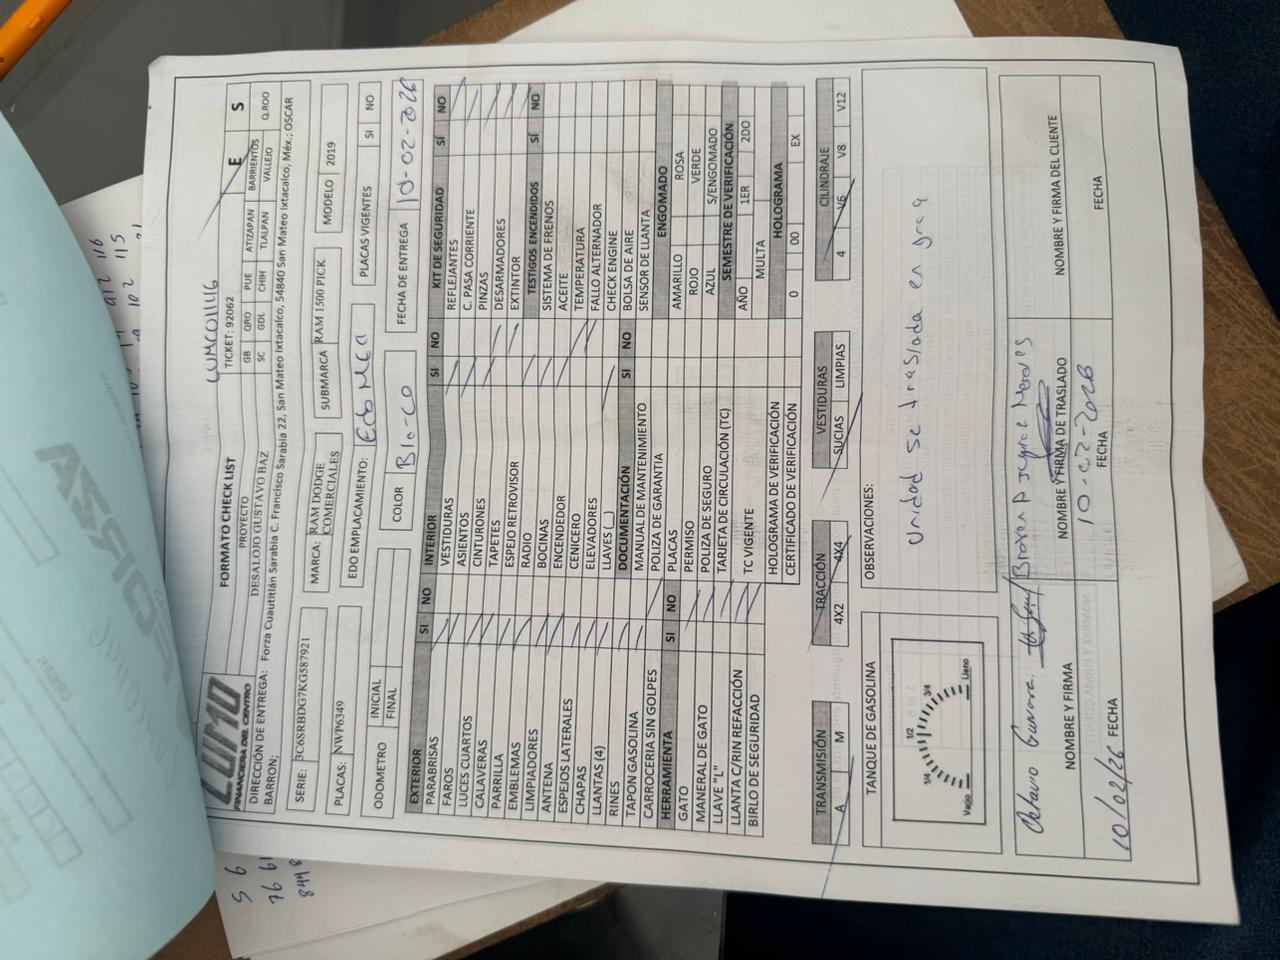 LUMO
FINANCIERA DEL CENTRO
FORMATO CHECK LIST
LUMCO11116
TICKET: 92062
E S
PROYECTO
DESALOJO GUSTAVO BAZ
GB QRO PUE ATIZAPAN BARRIENTOS Q.ROO
SC GDL CHIH TLALPAN VALLEJO
DIRECCIÓN DE ENTREGA: Forza Cuautitlán Sarabia C. Francisco Sarabia 22, San Mateo Ixtacalco, 54840 San Mateo Ixtacalco, Méx.; OSCAR
BARRON;
SERIE: 3C6SRBDG7KG587921
MARCA: RAM DODGE COMERCIALES
SUBMARCA RAM 1500 PICK
MODELO 2019
PLACAS: NWP6349
EDO EMPLACAMIENTO: Edo Mex
PLACAS VIGENTES SI NO
ODOMETRO INICIAL
FINAL
COLOR Blanco
FECHA DE ENTREGA 10-02-2026
EXTERIOR SI NO
PARABRISAS
FAROS
LUCES CUARTOS
CALAVERAS
PARRILLA
EMBLEMAS
LIMPIADORES
ANTENA
ESPEJOS LATERALES
CHAPAS
LLANTAS (4)
RINES
TAPON GASOLINA
CARROCERIA SIN GOLPES
HERRAMIENTA SI NO
GATO
MANERAL DE GATO
LLAVE "L"
LLANTA C/RIN REFACCIÓN
BIRLO DE SEGURIDAD
INTERIOR SI NO
VESTIDURAS
ASIENTOS
CINTURONES
TAPETES
ESPEJO RETROVISOR
RADIO
BOCINAS
ENCENDEDOR
CENICERO
ELEVADORES
LLAVES (__)
DOCUMENTACIÓN SI NO
MANUAL DE MANTENIMIENTO
POLIZA DE GARANTIA
PLACAS
PERMISO
POLIZA DE SEGURO
TARJETA DE CIRCULACIÓN (TC)
TC VIGENTE
HOLOGRAMA DE VERIFICACIÓN
CERTIFICADO DE VERIFICACIÓN
KIT DE SEGURIDAD SÍ NO
REFLEJANTES
C. PASA CORRIENTE
PINZAS
DESARMADORES
EXTINTOR
TESTIGOS ENCENDIDOS SÍ NO
SISTEMA DE FRENOS
ACEITE
TEMPERATURA
FALLO ALTERNADOR
CHECK ENGINE
BOLSA DE AIRE
SENSOR DE LLANTA
ENGOMADO
AMARILLO ROSA
ROJO VERDE
AZUL S/ENGOMADO
SEMESTRE DE VERIFICACIÓN
AÑO 1ER 2DO
MULTA
HOLOGRAMA
0 00 EX
TRANSMISIÓN
A M
TRACCIÓN
4X2 4X4
VESTIDURAS
SUCIAS LIMPIAS
CILINDRAJE
4 V6 V8 V12
TANQUE DE GASOLINA
Vacio 1/4 1/2 3/4 Lleno
OBSERVACIONES:
unidad se traslada en grua
Octavio Guevara
NOMBRE Y FIRMA
10/02/26 FECHA
NOMBRE Y FIRMA DE TRASLADO
10-02-2026
FECHA
NOMBRE Y FIRMA DEL CLIENTE
FECHA